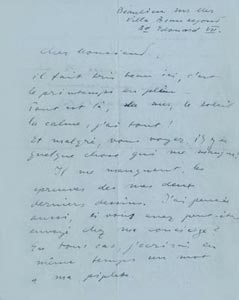 Beaulieu sur Mer
Villa
Bd Edouard VII.
Cher Monsieur,
Il fait très beau ici, c'est
le printemps en plein.
Tout est là, la mer, le soleil
le calme, j'ai tout!
Et malgré, vous voyez, il y a
quelque chose qui me manque,
Il me manquent, les
épreuves des mes deux
derniers dessins. J'ai pensé
aussi, si vous avez peut-être
envoyé chez ma concierge?
En tous cas, j'écrirai en
même temps un mot
à ma pipelette.